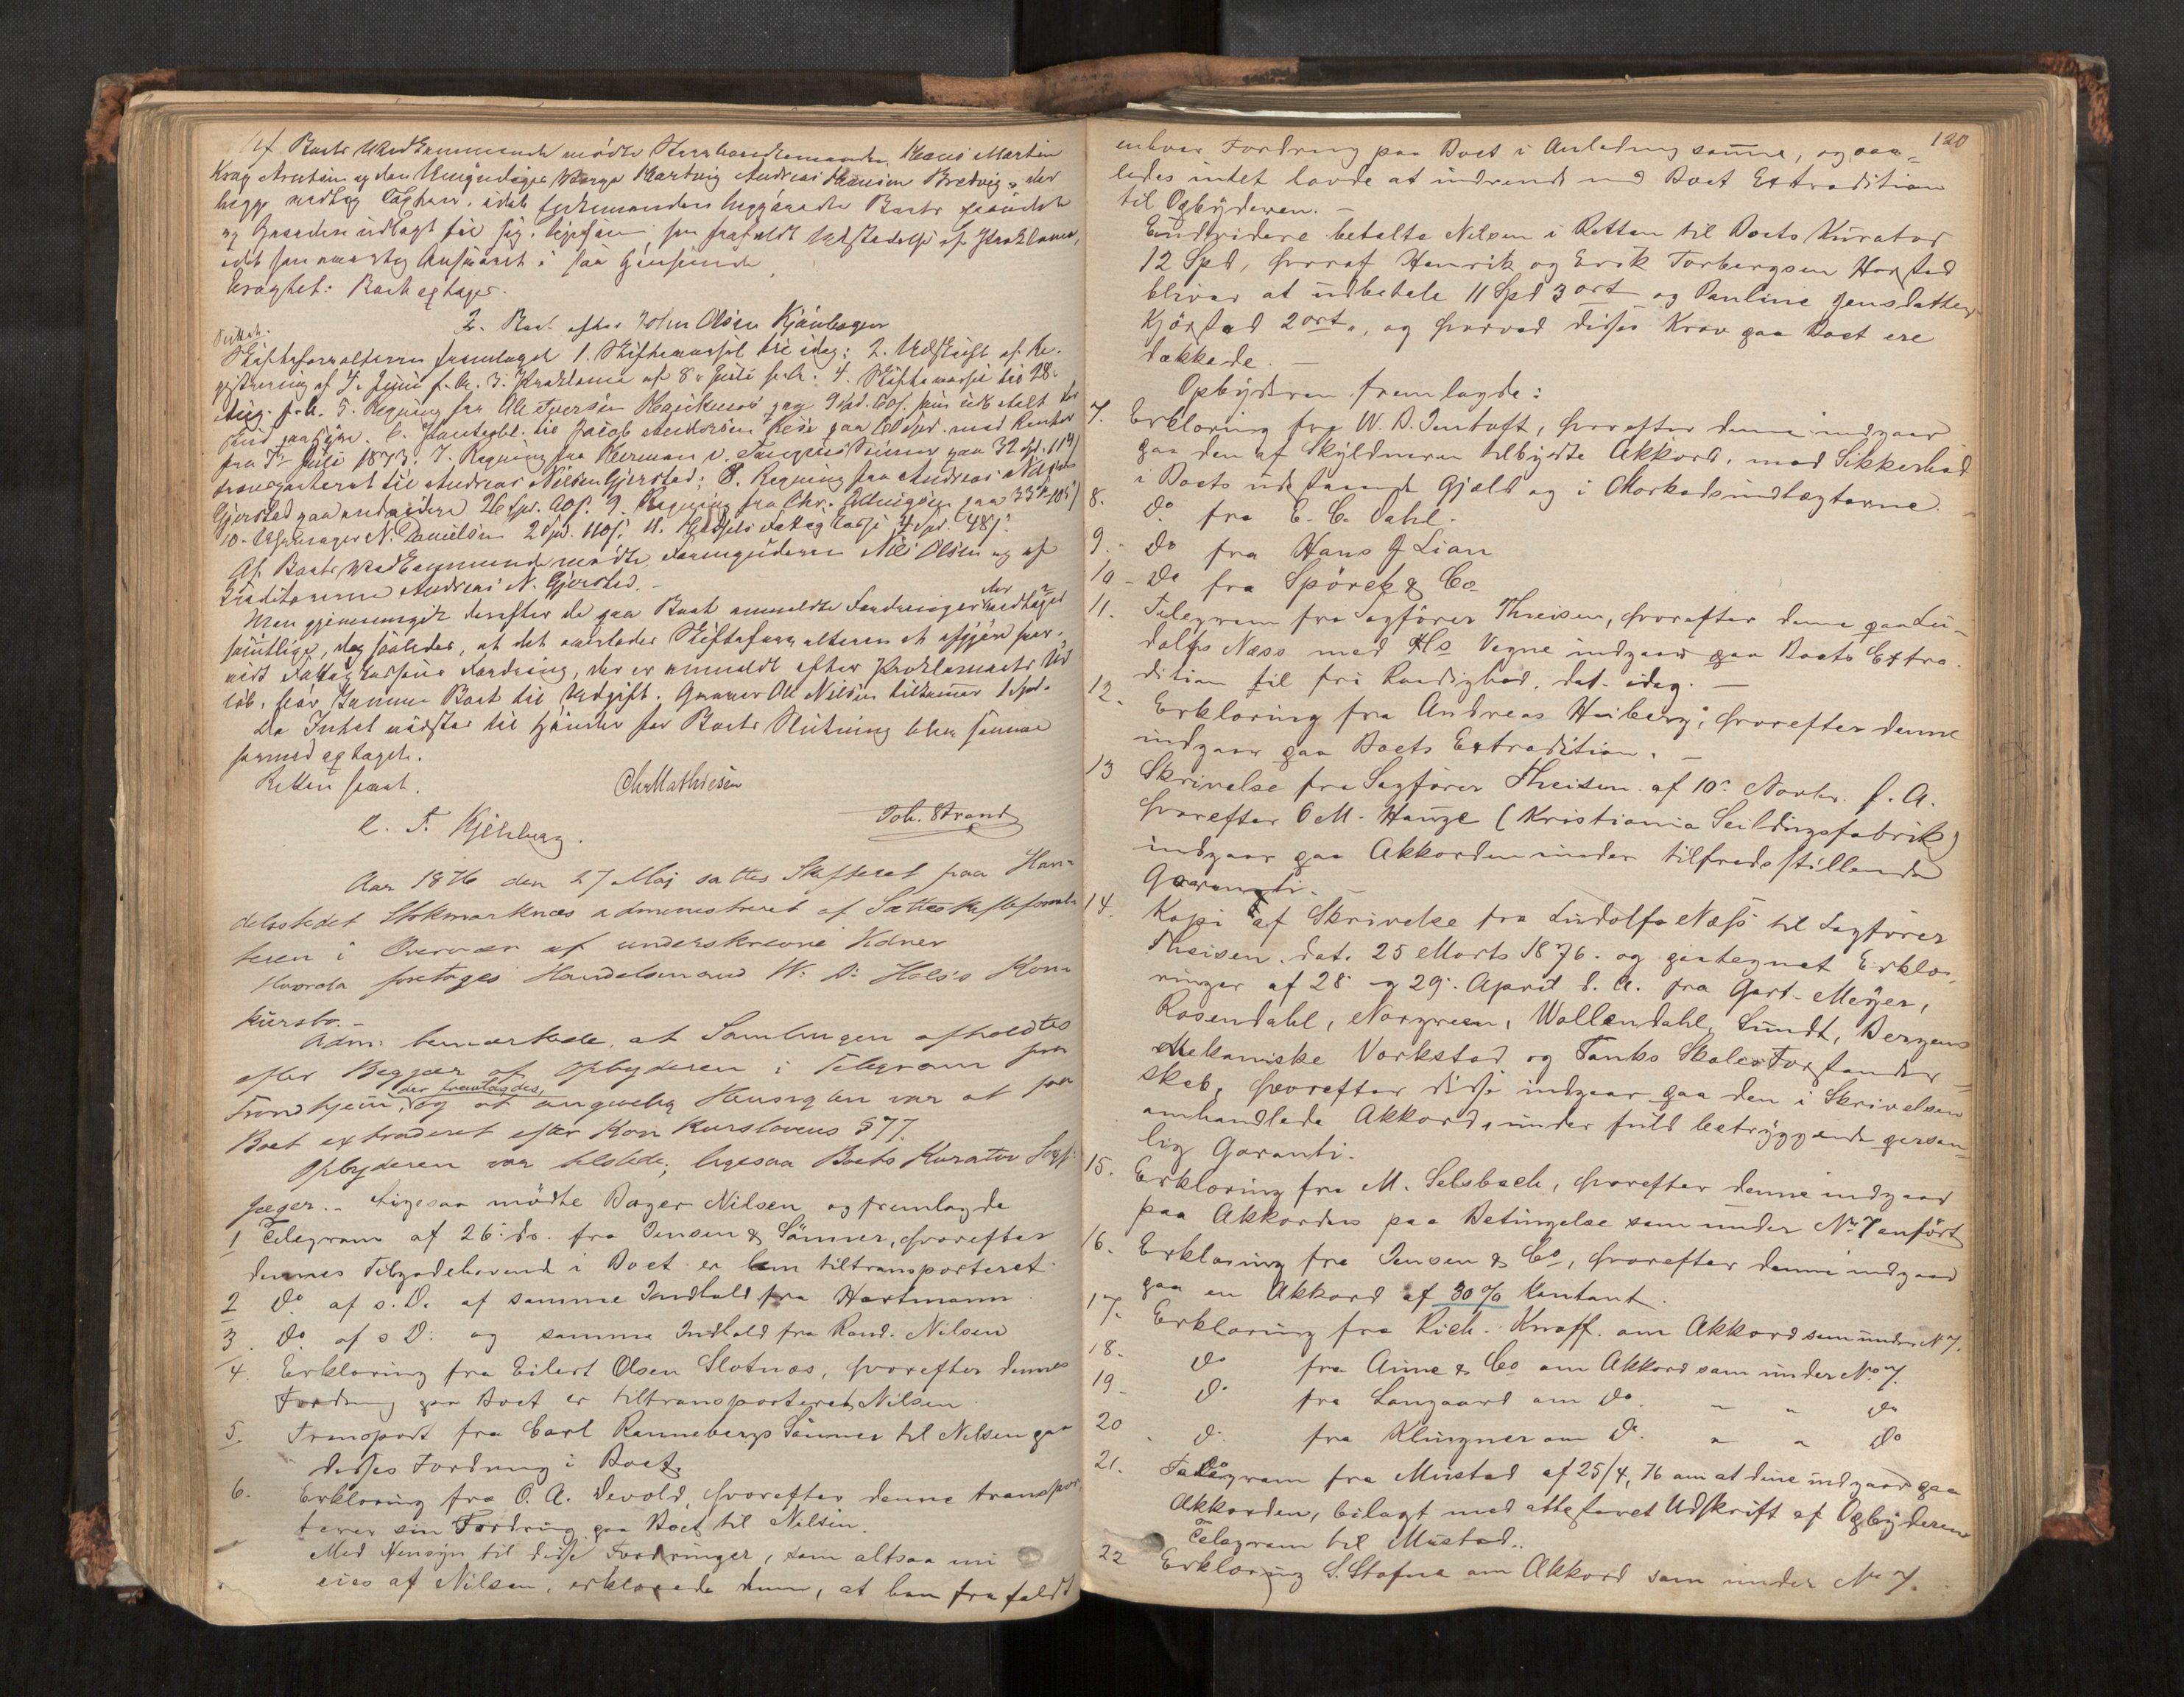 Af Boets Vedkommende mødte Stervboenkemanden Hans Martin
Krag Arntsen og den Umyndiges Værge Hartvig Andreas Hansen Bredvig, der
begge vedtog Taxten, idet Enkemanden begjærede Boets
og Gjælden udlagt til sig. Ligesom han frafaldt Udstedelse af Proklama,
idet han overtog Ansvaret i saa Henseende.
Eragtet: Boet optages.
2. Boet efter John Olsen Kjønhagen
Skifteforvalteren fremlagde 1. Skiftevarsel til idag: 2. Udskrift af Re-
gistrering af 4. Juni f. A. 3. Proklama af 8. Juli f. A. 4. Skiftevarsel til 28.
Aug. f. A. 5. Regning fra Ole Iversen paa 9 Spd. 60 s.
6. Panteobl. til Jacob Andersen paa 60 Spd. med Renter
fra Juli 1873. 7. Regning fra Herman paa 32 Spd. 114 s.
transporteret til Andreas Nielsen Gjersted: 8. Regning fra Andreas Nielsen
Gjersted paa 26 Spd. 20 s. 9. Regning fra Chr. paa 33
10. N. Danielsen 2 Spd. 110 s. 11. 4 Spd. 48 s.
Af Boets Vedkommende mødte Formynderen Nils Olsen og af
Kreditorerne Andreas N. Gjersted.
Man gjennemgik derefter de paa Boet anmeldte Fordringer der vedtoges
samtlige, dog saaledes, at det overlades Skifteforvalteren at afgjøre hvor-
vidt Fattigkassens Fordring, der er anmeldt efter Proklamaets Ud-
løb, bør komme Boet til Udgift. Ole Nilsen tilkommer 1 Spd.
Da Intet udfordres til Hinder for Boets Slutning blev samme
hermed optaget.
Retten hævet.
Chr Mathiesen
C. F. Kjelberg.
Joh. Strand
Aar 1876 den 27 Maj sattes Skifteret paa Han-
delsstedet Stokmarknæs administreret af Sætteskifteforvalt-
teren i Overvær af underskrevne Vidner
Hvorda foretoges Handelsmand W. D. Hals's Kon-
kursbo.-
Adm: bemærkede, at Samlingen afholdtes
efter Begjær af Opbyderen i Telegram fra
Trondhjem, der fremlagdes, og at angivelig Hensigten var at faa
Boet extraderet efter Konkurslovens §77.
Opbyderen var tilstede; ligesaa Boets Kurator Sagf:
Jæger.- Ligesaa mødte Bager Nilsen og fremlagde
1 Telegram af 26: ds. fra Jensen & Sønner, hvorefter
dennes Tilgodehavend i Boet er ham tiltransporteret.
2 Do af s. D. af samme Indhold fra Hartmann.
3. Do af s D: og samme Indhold fra Rand. Nilsen
4. Erklæring fra Eilert Olsen Slotnæs, hvorefter dennes
Fordring paa Boet er tiltransporteret Nilsen.
5. Transport fra Carl Rannebergs Sønner til Nilsen paa
disses Fordring i Boet.
6. Erklæring fra O. A. Devold, hvorefter denne transpor-
terer sin Fordring paa Boet til Nilsen.
Med Hensyn til disse Fordringer, som altsaa nu
eies af Nilsen, erklærede denne, at han frafaldt
120
enhver Fordring paa Boet i Anledning samme, og saa-
ledes intet havde at indvende mod Boet Extradition
til Opbyderen. -
Endvidere betalte Nilsen i Retten til Boets Kurator
12 Spd, hvoraf Henrik og Erik Torbergsen Horsted
bliver at udbetale 11 Spd 3 ort og Pauline Jensdatter
Kjørstad 2 ort, og hvorved disses Krav paa Boet ere
dækkede. -
Opbyderen fremlagde:
7. Erklæring fra W. D. Jentoft, hvorefter denne indgaar
paa den af Skyldneren tilbydte Akkord, mod Sikkerhed
i Boets udestaaende Gjæld og i Markedsindtægterne. -
8. Do fra E. C. Dahl.
9. - Do fra Hans J Lian
10 - Do fra Spørck & Co
11. Telegram fra Sagfører Theisen, hvorefter denne paa Lu-
dolfs Næss med Hs Vegne indgaar paa Boets Extra-
dition til fri Raadighed, dat. idag. -
12. Erklæring fra Andreas Heiberg, hvorefter denne
indgaar paa Boets Extradition. -
13 Skrivelse fra Sagfører Theisen af 10. Novbr. f. A.
hvorefter O M. Hauge (Kristiania Seildugsfabrik)
indgaar paa Akkorden under tilfredsstillende
Garanti. -
14. Kopi af Skrivelse fra Ludolf Næss til Sagfører
Theisen dat. 25 Marts 1876. og paategnet Erklæ-
ringer af 28 og 29. April d. A. fra Gert. Meyer,
Rosendahl, Norgreen, Wollendahl, Sundt, Bergens
Mekaniske Værksted og Tanks Skoles Forstander-
skab, hvorefter disse indgaar paa den i Skrivelsen
omhandlede Akkord, under fuld betryggende person-
lig Garanti.
15. Erklæring fra M. Selsbach, hvorefter denne indgaar
paa Akkorden paa Betingelse som under No. 7 anført
16. Erklæring fra Jensen & Co, hvorefter denne indgaar
paa en Akkord af 30 % Kontant.
17. Erklæring fra Rich. Knoff. om Akkord som under No 7.
18. Do fra Anne & Co om Akkord som under No 7.
19 - Do fra Langaard om Do. " " Do
20 . Do fra Klingner om Do. " " Do
21. Telegram fra Mustad af 25/4, 76 om at dene indgaar paa
Akkorden, bilagt med attesteret Udskrift af Opbyderens
Telegram til Mustad..
22 Erklæring S. Stafne om Akkord som under No 7.